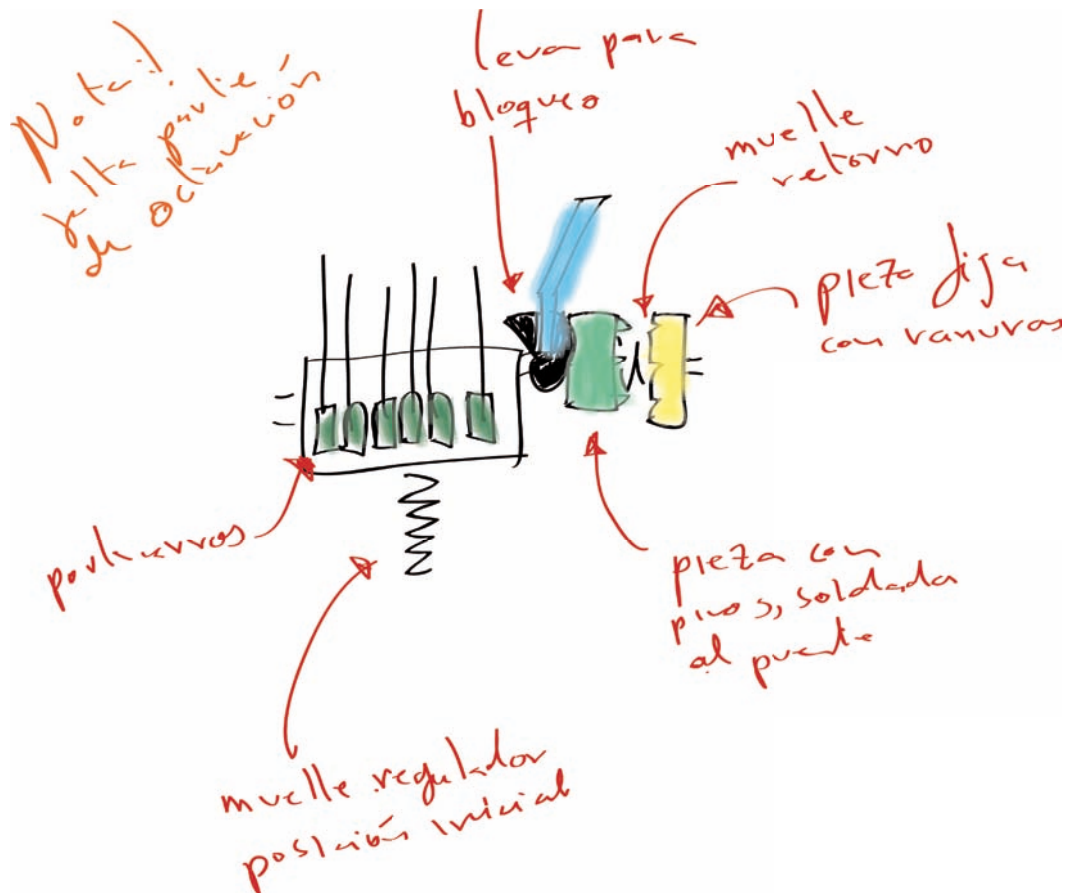 Nota!
falta parte
de octavación
leva para
bloqueo
muelle
retorno
pieza fija
con ranuras
pieza con
pivos, soldada
al puente
muelle regulador
posición inicial